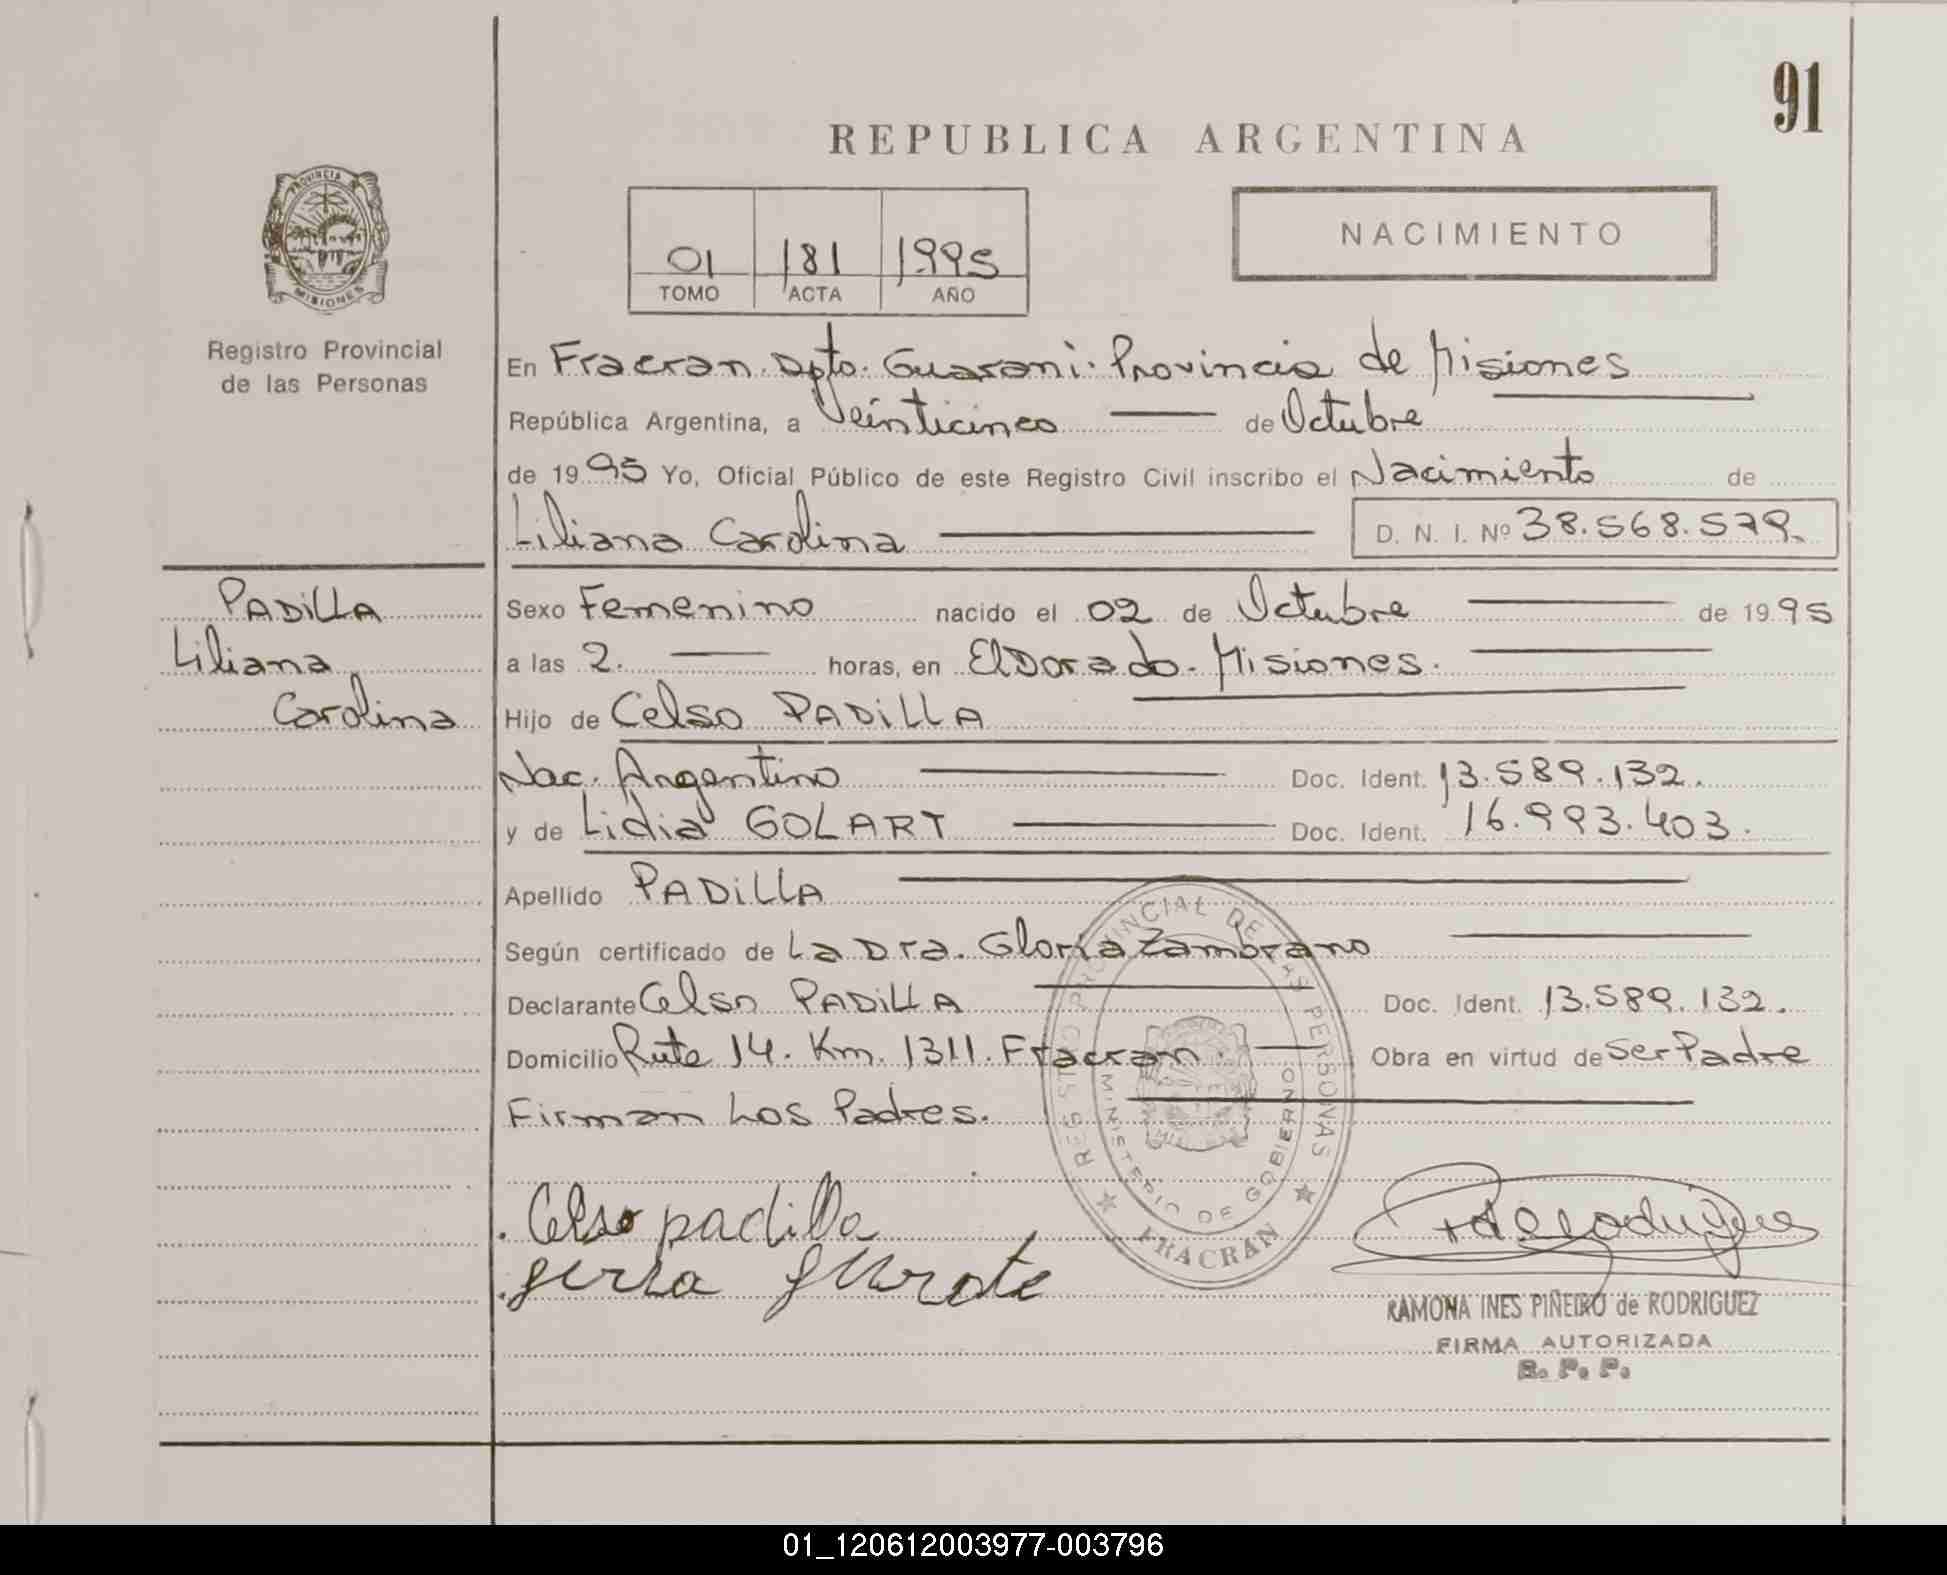 91
REPUBLICA ARGENTINA
PROVINCIA DE
MISIONES
Registro Provincial
de las Personas
01 181 1995
TOMO ACTA AÑO
NACIMIENTO
En Fracran. Dpto. Guarani. Provincia de Misiones
República Argentina, a Veinticinco de Octubre
de 1995 Yo, Oficial Público de este Registro Civil inscribo el Nacimiento de
Liliana Carolina D. N. I. Nº 38.568.579.
PADiLLA
Liliana
Carolina
Sexo Femenino nacido el 02 de Octubre de 1995
a las 2. horas, en ElDorado. Misiones.
Hijo de Celso PADiLLA
Nac. Argentino Doc. Ident. 13.589.132.
y de Lidia GOLART Doc. Ident. 16.993.403.
Apellido PADiLLA
Según certificado de La Dra. Gloria Zambrano
Declarante Celso PADiLLA Doc. Ident. 13.589.132.
Domicilio Ruta 14. Km. 1311. Fracran. Obra en virtud de Ser Padre
Firman Los Padres.
REGISTRO PROVINCIAL DE LAS PERSONAS
MINISTERIO DE GOBIERNO
FRACRAN
Celso padilla
RAMONA INES PIÑEIRO de RODRIGUEZ
FIRMA AUTORIZADA
R. P. P.
01_120612003977-003796